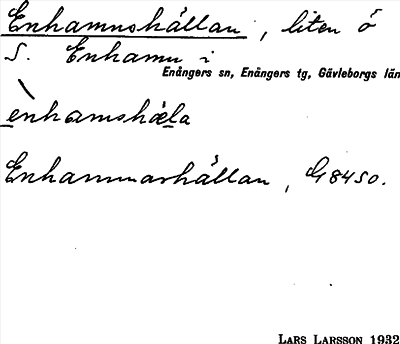 Enhamnshällan, liten ö
S. Enhamn i
Enångers sn, Enångers tg, Gävleborgs län
enhamshæla
Enhamnarhällan, G 8450.
LARS LARSSON 1932